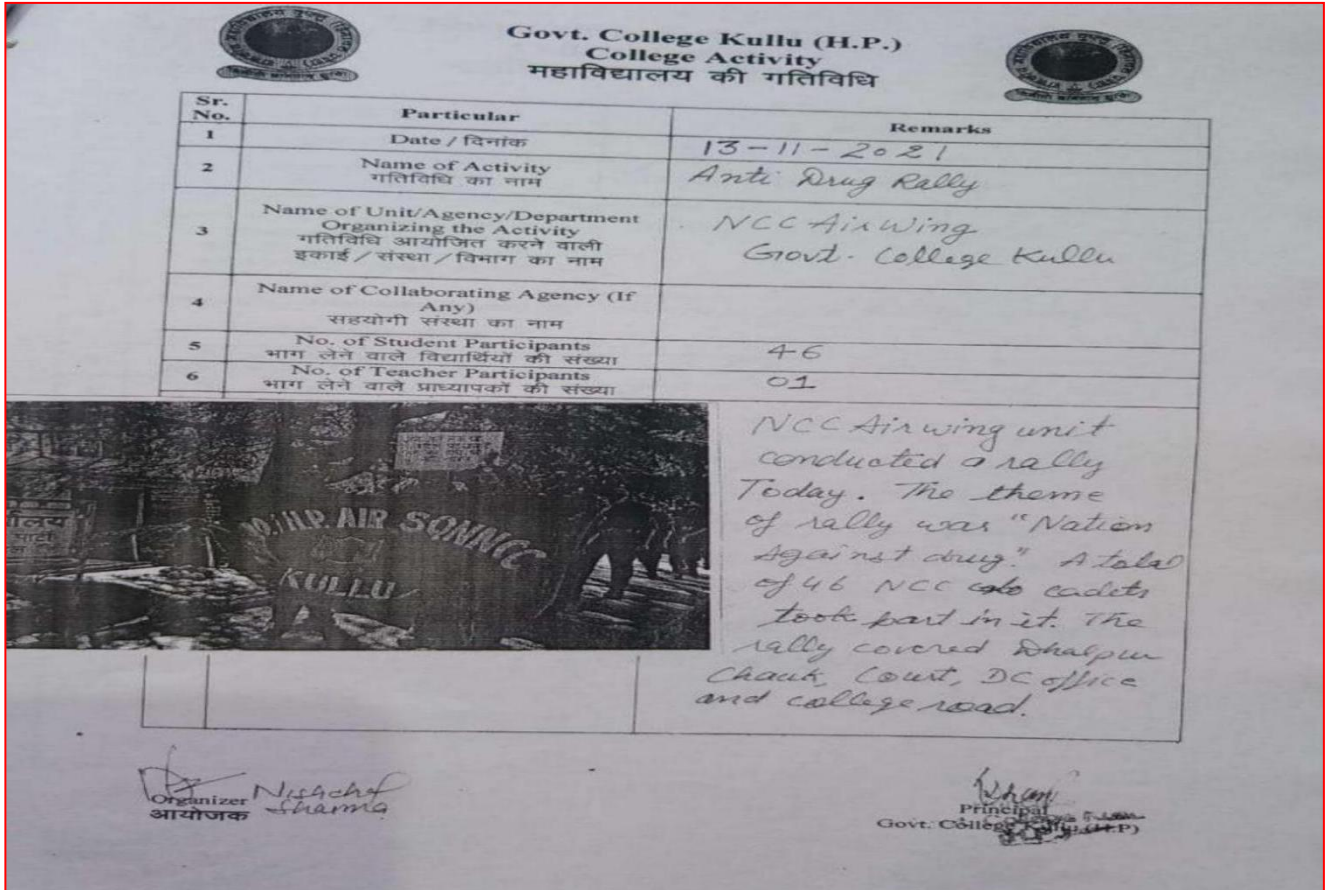 Govt. College Kullu (H.P.)
College Activity
महाविद्यालय की गतिविधि
Sr. No. Particular Remarks
1 Date / दिनांक 13-11-2021
2 Name of Activity Anti Drug Rally
गतिविधि का नाम
3 Name of Unit/Agency/Department NCC Air Wing
Organizing the Activity Govt. College Kullu
गतिविधि आयोजित करने वाली
इकाई / संस्था / विभाग का नाम
4 Name of Collaborating Agency (If
Any)
सहयोगी संस्था का नाम
5 No. of Student Participants 46
भाग लेने वाले विद्यार्थियों की संख्या
6 No. of Teacher Participants 01
भाग लेने वाले प्राध्यापकों की संख्या
H.P. AIR SQN NCC
KULLU
NCC Air wing unit
conducted a rally
Today. The theme
of rally was "Nation
Against drug." A total
of 46 NCC cadets
took part in it. The
rally covered Dhalpur
Chauk, Court, DC office
and college road.
Organizer Sharma
आयोजक
Principal
Govt. College Kullu (H.P)